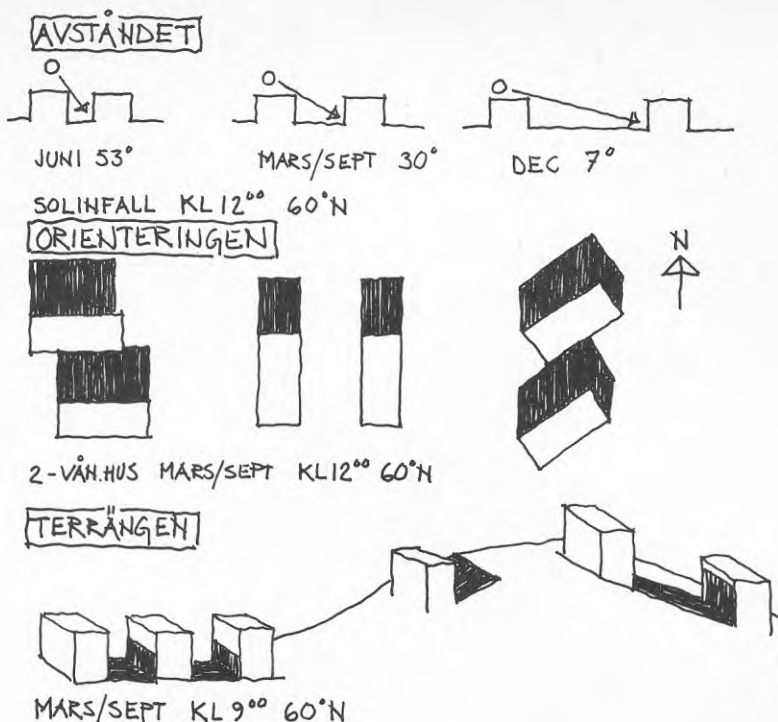 AVSTÅNDET
JUNI 53°
MARS/SEPT 30°
DEC 7°
SOLINFALL KL 12⁰⁰ 60°N
ORIENTERINGEN
N
2-VÅN.HUS MARS/SEPT KL12⁰⁰ 60°N
TERRÄNGEN
MARS/SEPT KL 9⁰⁰ 60°N